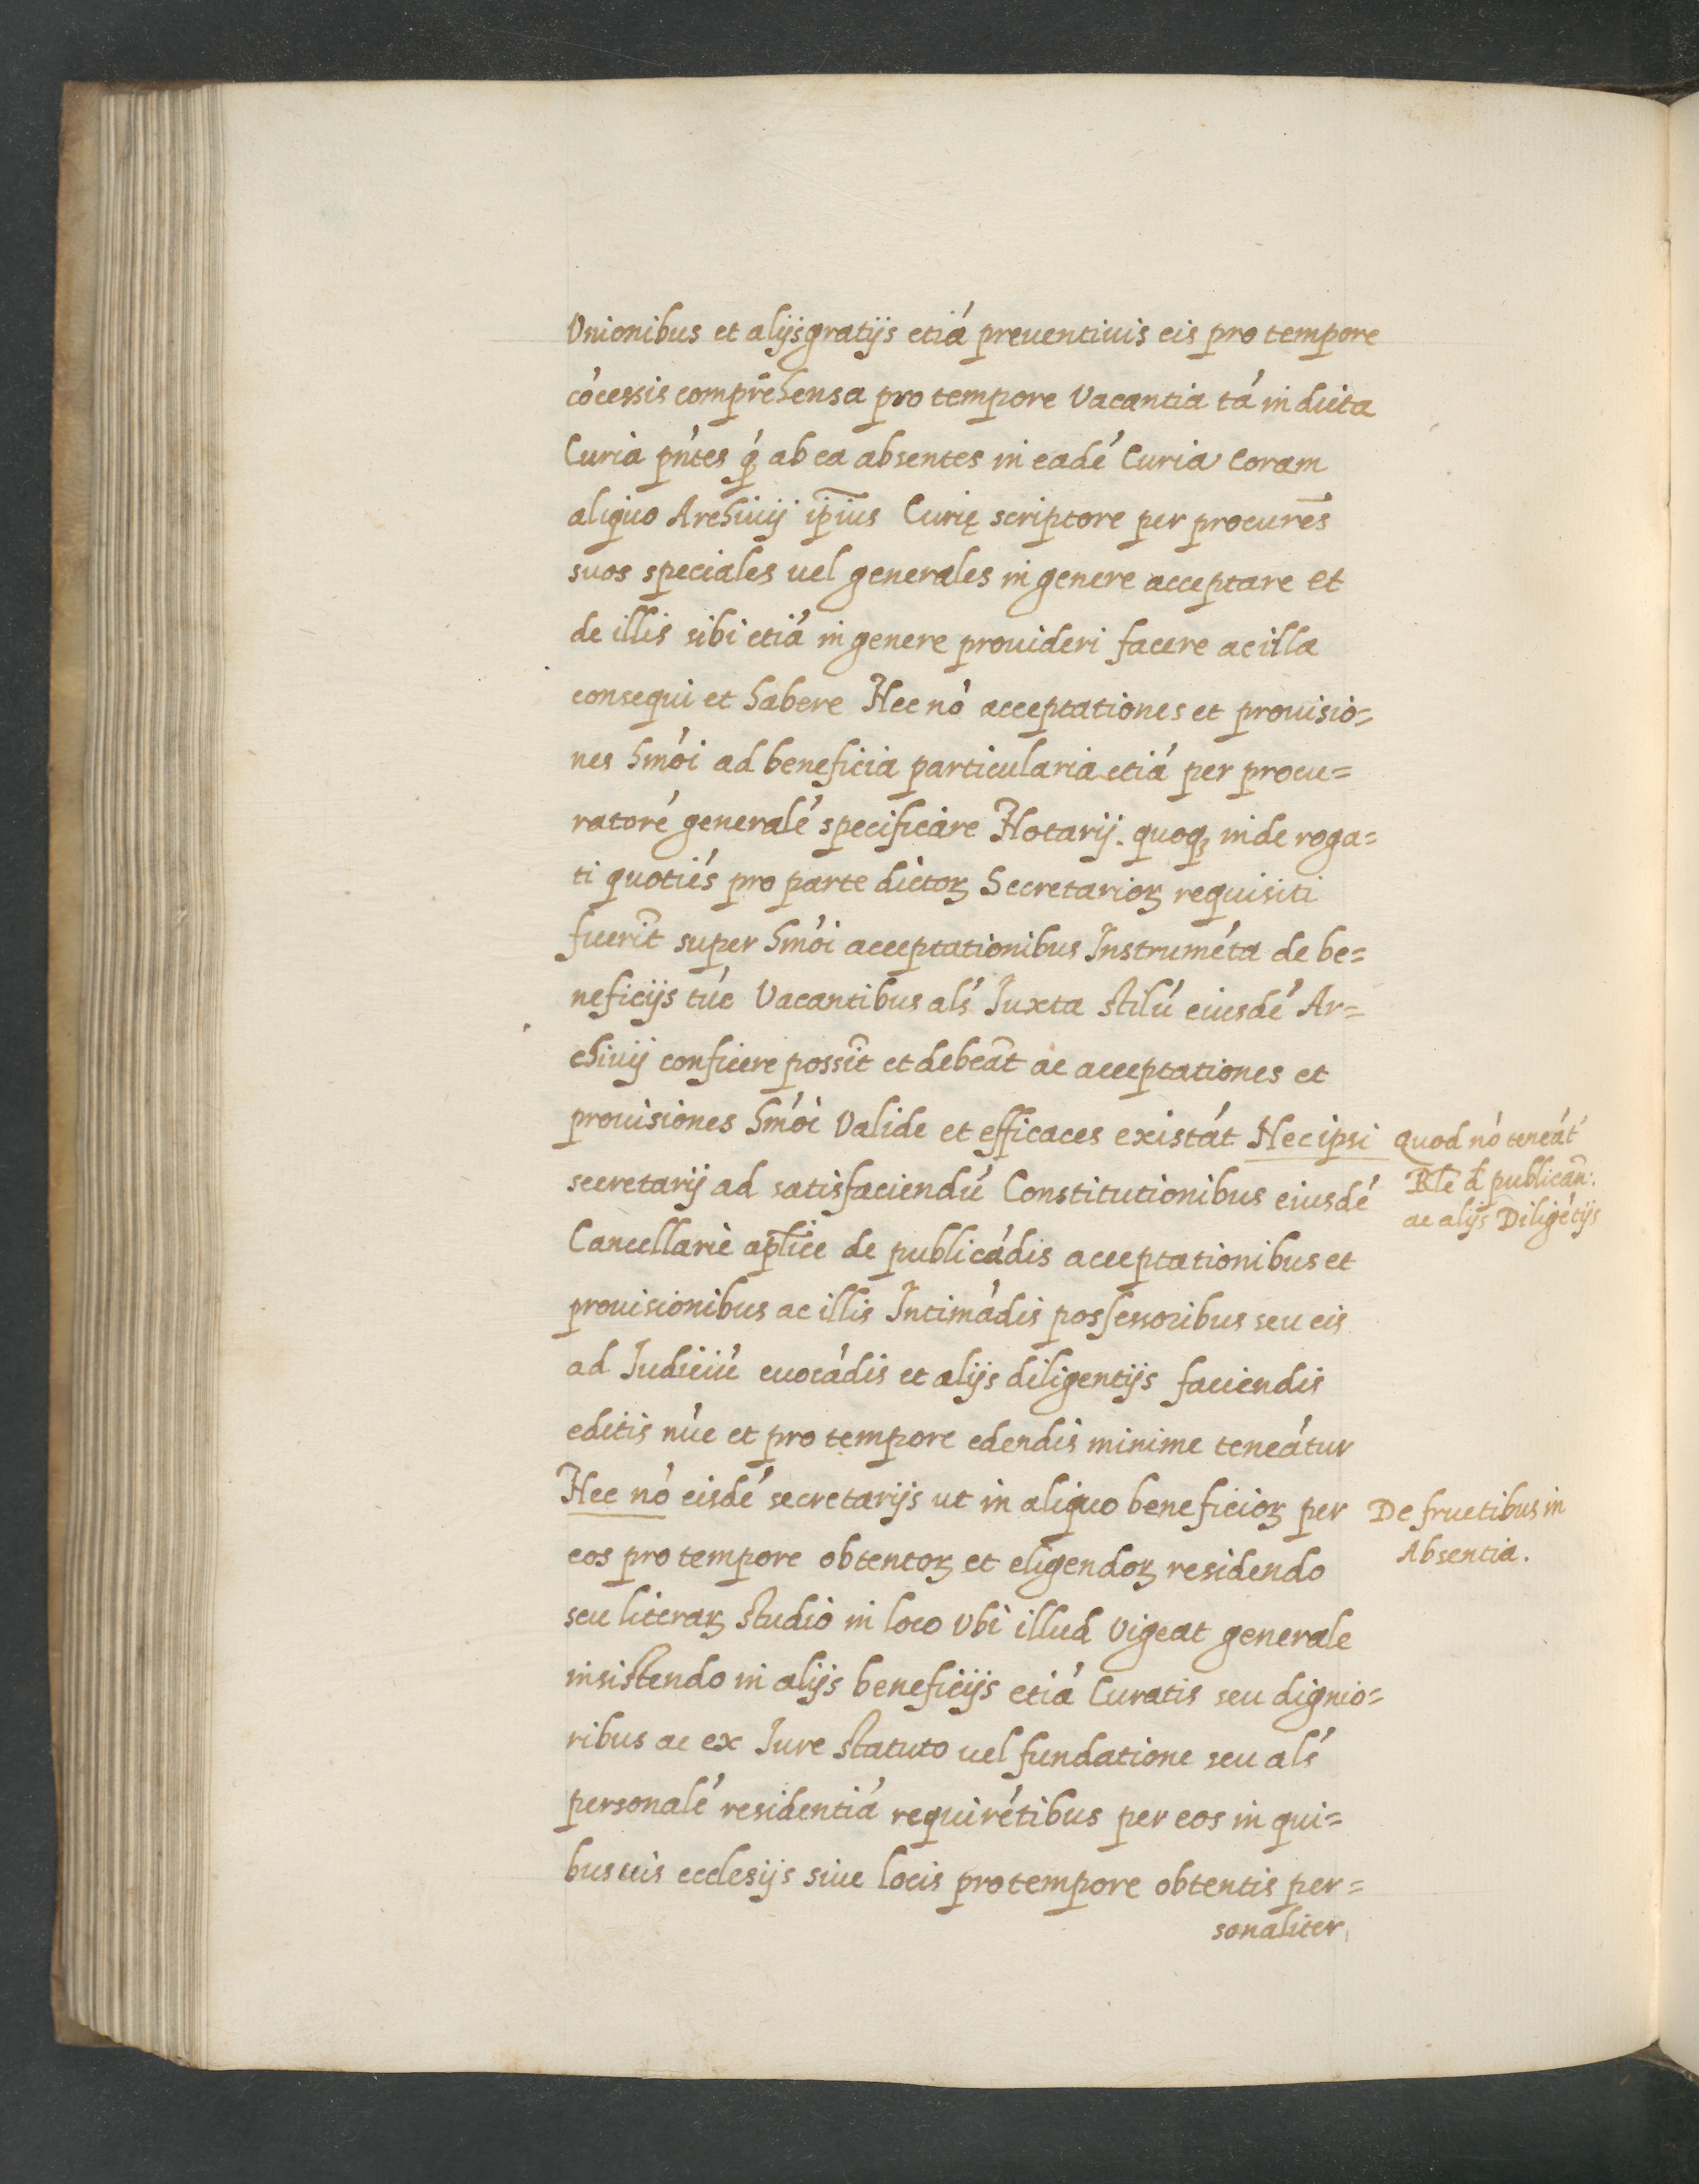 Vnionibus et alijs gratijs etiá preuentiuis eis pro tempore
cócessis comprēhensa pro tempore Vacantia tá in dicta
Curia pńtes q́ ab ea absentes in eadé Curia Coram
aliquo Archiuij ip̄ius Curię scriptore per procurēs
suos speciales uel generales in genere acceptare et
de illis sibi etiá in genere prouideri facere ac illa
consequi et habere Nec nó acceptationes et prouisio=
nes hmói ad beneficia particularia etiá per procu=
ratoré generalé specificare Notarij. quoqꝫ inde roga=
ti quotiés pro parte dictoꝝ Secretarioꝝ requisiti
fuerit̄ super hmói acceptationibus Instruméta de be=
neficijs túc Vacantibus alś Iuxta stilú eiusdé Ar=
chiuij conficere possīt et debeāt ac acceptationes et
prouisiones hmói Valide et efficaces existát Nec ipsi
secretarij ad satisfaciendú Constitutionibus eiusdé
Cancellarie apl̄ice de publicádis acceptationibus et
prouisionibus ac illis Intimádis possessoribus seu eis
ad Iudiciú euocádis et alijs diligentijs faciendis
editis núc et pro tempore edendis minime teneátur
Nec nó eisdé secretarijs ut in aliquo beneficioꝝ per
eos pro tempore obtentoꝝ et eligendoꝝ residendo
seu literaꝝ studio in loco Vbi illud Vigeat generale
insistendo in alijs beneficijs etiá Curatis seu dignio=
ribus ac ex Iure statuto uel fundatione seu alś
personalé residentiá requirétibus per eos in qui=
busuis ecclesijs siue locis pro tempore obtentis per=
sonaliter
Quod nó teneát
Rl̄e d̄ publican̄:
ac alijs Diligétijs
De fructibus in
Absentia.